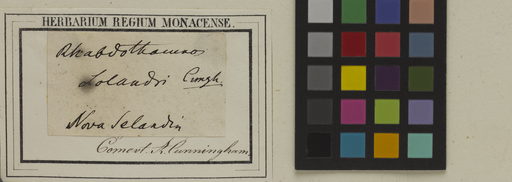 HERBARIUM REGIUM MONACENSE.
Rhabdothamnus
Solandri Cungh
Nova Selandia
Comert. A. Cunningham